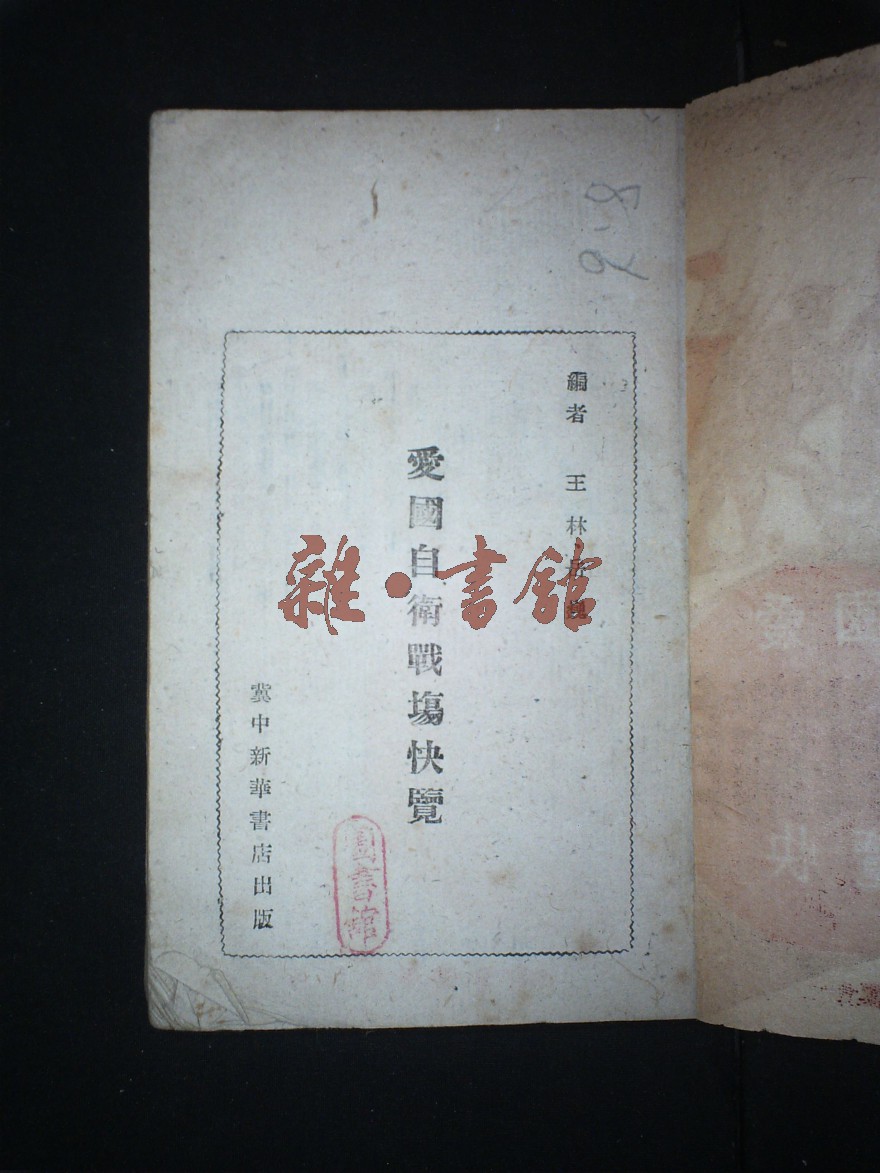 編者 王林
愛國自衛戰場快覽
冀中新華書店出版
圖書館
雜·書館
愛國
快